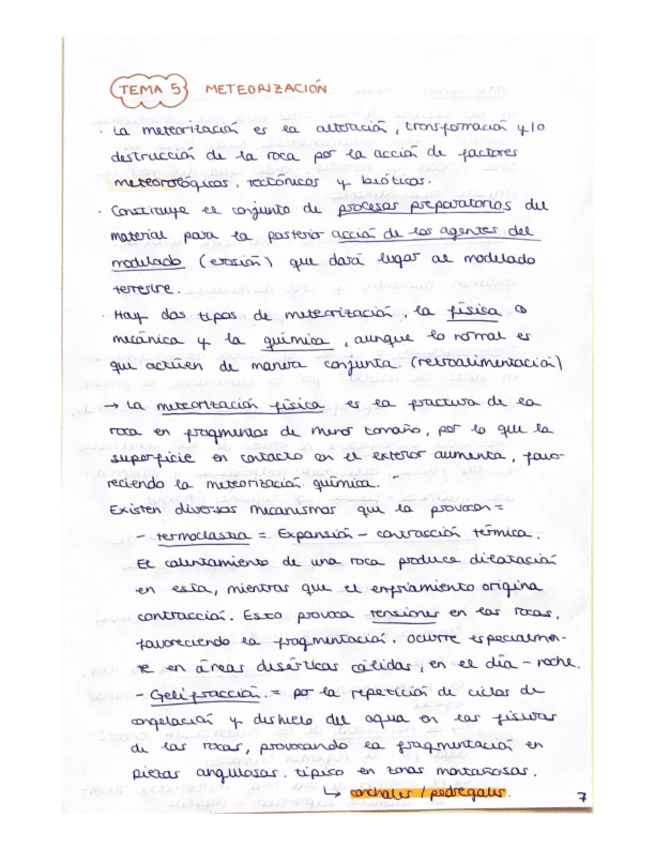 TEMA 5 METEORIZACIÓN
· La meteorización es la alteración, transformación y/o
destrucción de la roca por la acción de factores
meteorológicos, tectónicos y bióticos.
· Constituye el conjunto de procesos preparatorios del
material para la posterior acción de los agentes del
modelado (erosión) que dará lugar al modelado
terrestre.
· Hay dos tipos de meteorización, la física o
mecánica y la química, aunque lo normal es
que actúen de manera conjunta. (retroalimentación)
→ La meteorización física es la fractura de la
roca en fragmentos de menor tamaño, por lo que la
superficie en contacto con el exterior aumenta, favo-
reciendo la meteorización química.
Existen diversos mecanismos que la provocan =
- termoclastia = Expansión - contracción térmica.
El calentamiento de una roca produce dilatación
en esta, mientras que el enfriamiento origina
contracción. Esto provoca tensiones en las rocas,
favoreciendo la fragmentación. Ocurre especialmen-
te en áreas desérticas cálidas, en el día - noche.
- Gelifracción. = por la repetición de ciclos de
congelación y deshielo del agua en las fisuras
de las rocas, provocando la fragmentación en
piezas angulosas. típico en zonas montañosas.
↳ canchales / pedregales.
7